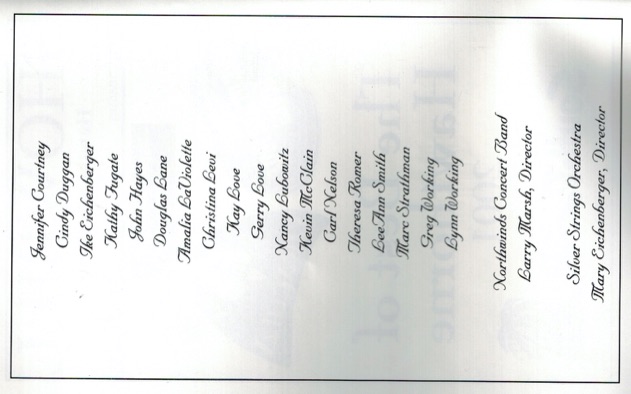 Jennifer Courtney
Cindy Duggan
The Eichenberger
Kathy Fugate
John Hayes
Douglas Lane
Amalia LaViolette
Christina Levi
Kay Love
Gerry Love
Nancy Lubowitz
Kevin McClain
Carl Nelson
Theresa Romer
LeeAnn Smith
Marc Strathman
Greg Working
Lynn Working
Northwinds Concert Band
Larry Marsh, Director
Silver Strings Orchestra
Mary Eichenberger, Director